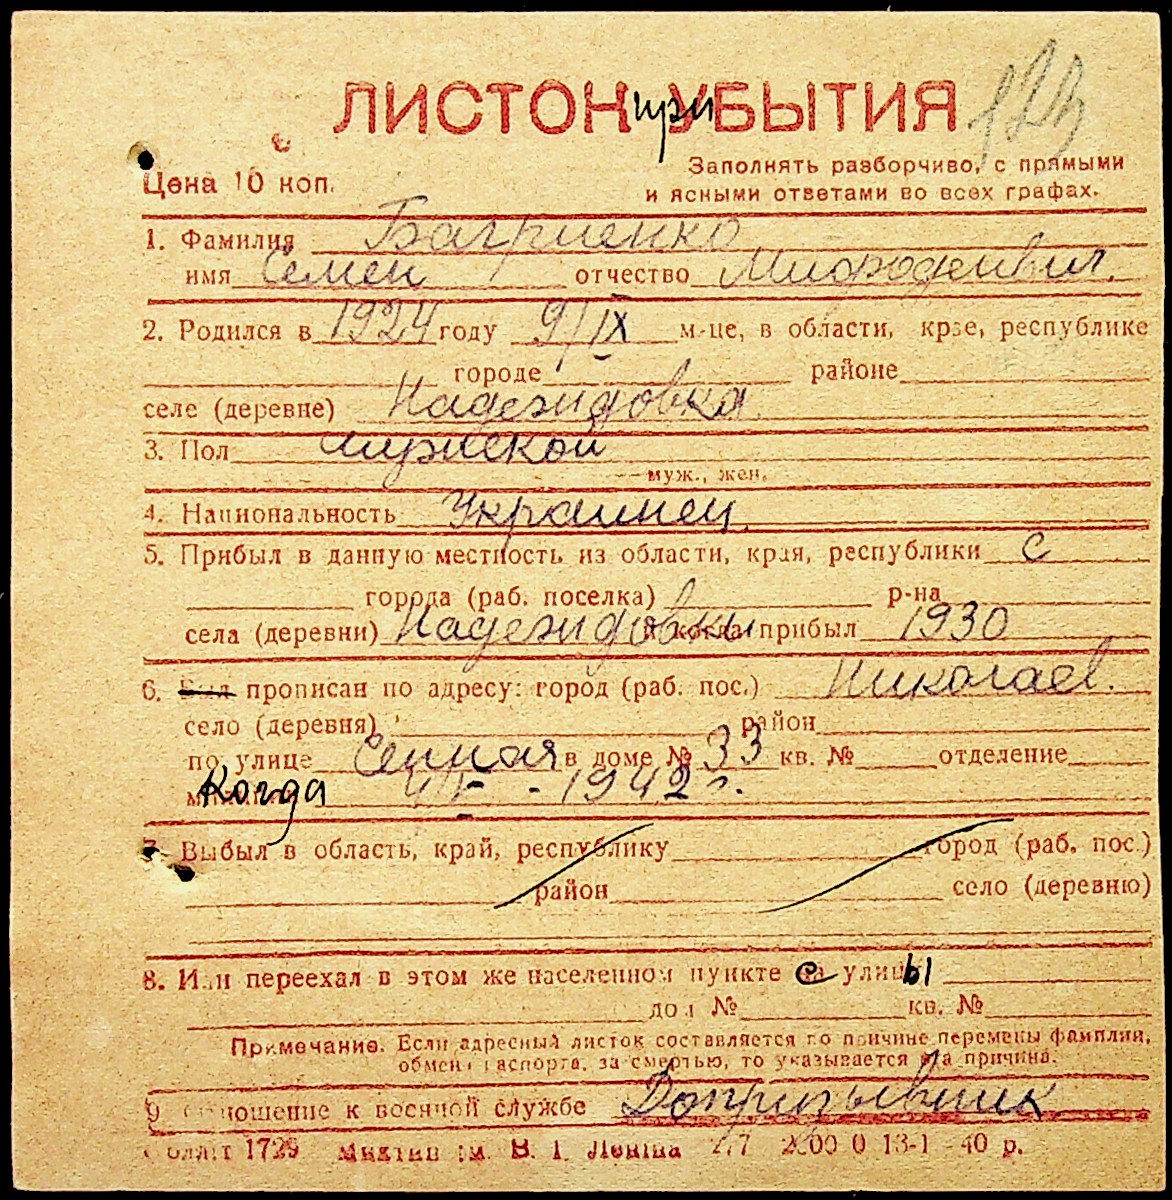 ЛИСТОК при УБЫТИЯ 123
Цена 10 коп.
Заполнять разборчиво, с прямыми
и ясными ответами во всех графах.
1. Фамилия Багриенко
имя Семен отчество
2. Родился в 1924 году 9/IX м-це, в области, крае, республике
городе районе
селе (деревне) Надеждовка
3. Пол мужской
муж., жен.
4. Национальность Украинец.
5. Прибыл в данную местность из области, края, республики с
города (раб. поселка) р-на
села (деревни) Надеждовки и когда прибыл 1930
6. Был прописан по адресу: город (раб. пос.) Николаев.
село (деревня) район
по улице Сенная в доме № 33 кв. № отделение
Когда 1942 г.
7. Выбыл в область, край, республику город (раб. пос.)
район село (деревню)
8. Или переехал в этом же населенном пункте с улицы
дом № кв. №
Примечание. Если адресный листок составляется по причине перемены фамилии,
обмена паспорта, за смертью, то указывается эта причина.
9. Отношение к военной службе Допризывник
1729 В. І. Леніна 2000 0 13-1 40 р.